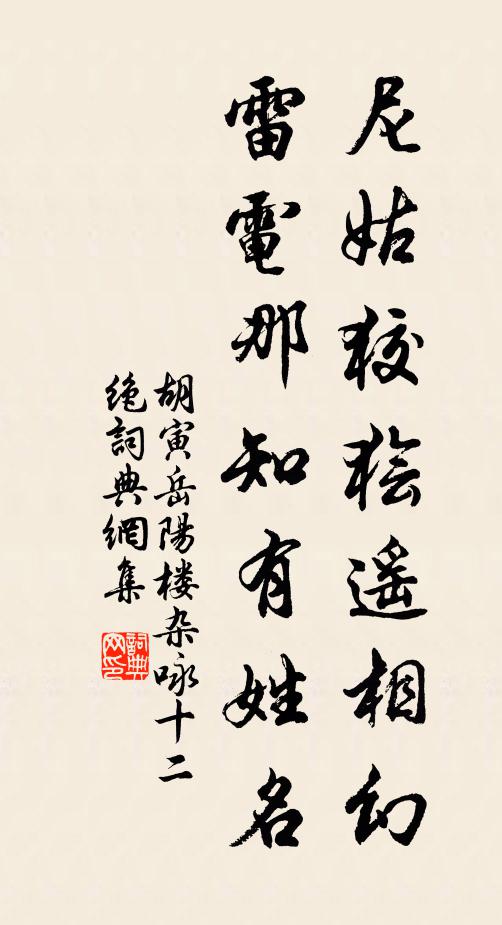 尼姑狡狯遥相幻
雷電那知有姓名
胡寅岳陽楼杂咏十二
绝詞典網集
詞典網印